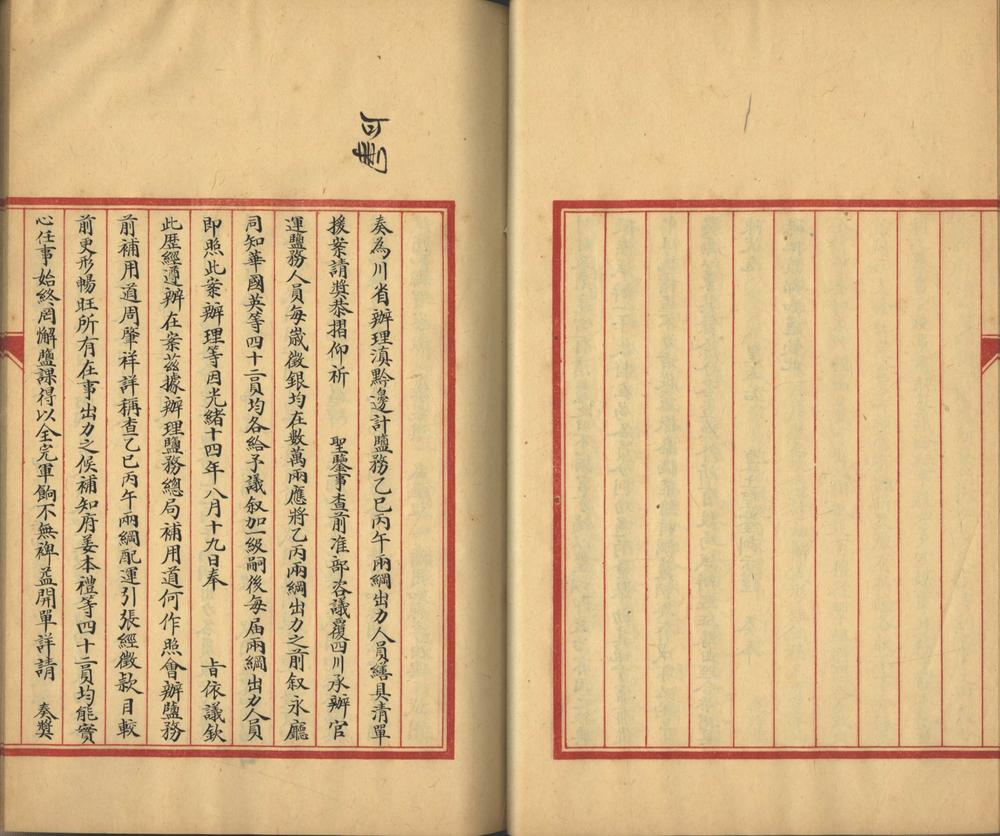 可刪
奏為川省辦理滇黔邊計鹽務乙巳丙午兩綱出力人員繕具清單
援案請獎恭摺仰祈 聖鑒事查前准部咨議覆四川承辦官
運鹽務人員每歲徵銀均在數萬兩應將乙丙兩綱出力之前敘永廳
同知華國英等四十二員均各給予議敘加一級嗣後每屆兩綱出力人員
即照此案辦理等因光緒十四年八月十九日奉 旨依議欽
此歷經遵辦在案茲據辦理鹽務總局補用道何作照會辦鹽務
前補用道周肇祥詳稱查乙巳丙午兩綱配運引張經徵款目較
前更形暢旺所有在事出力之候補知府姜本禮等四十二員均能實
心任事始終罔懈鹽課得以全完軍餉不無裨益開單詳請 奏獎